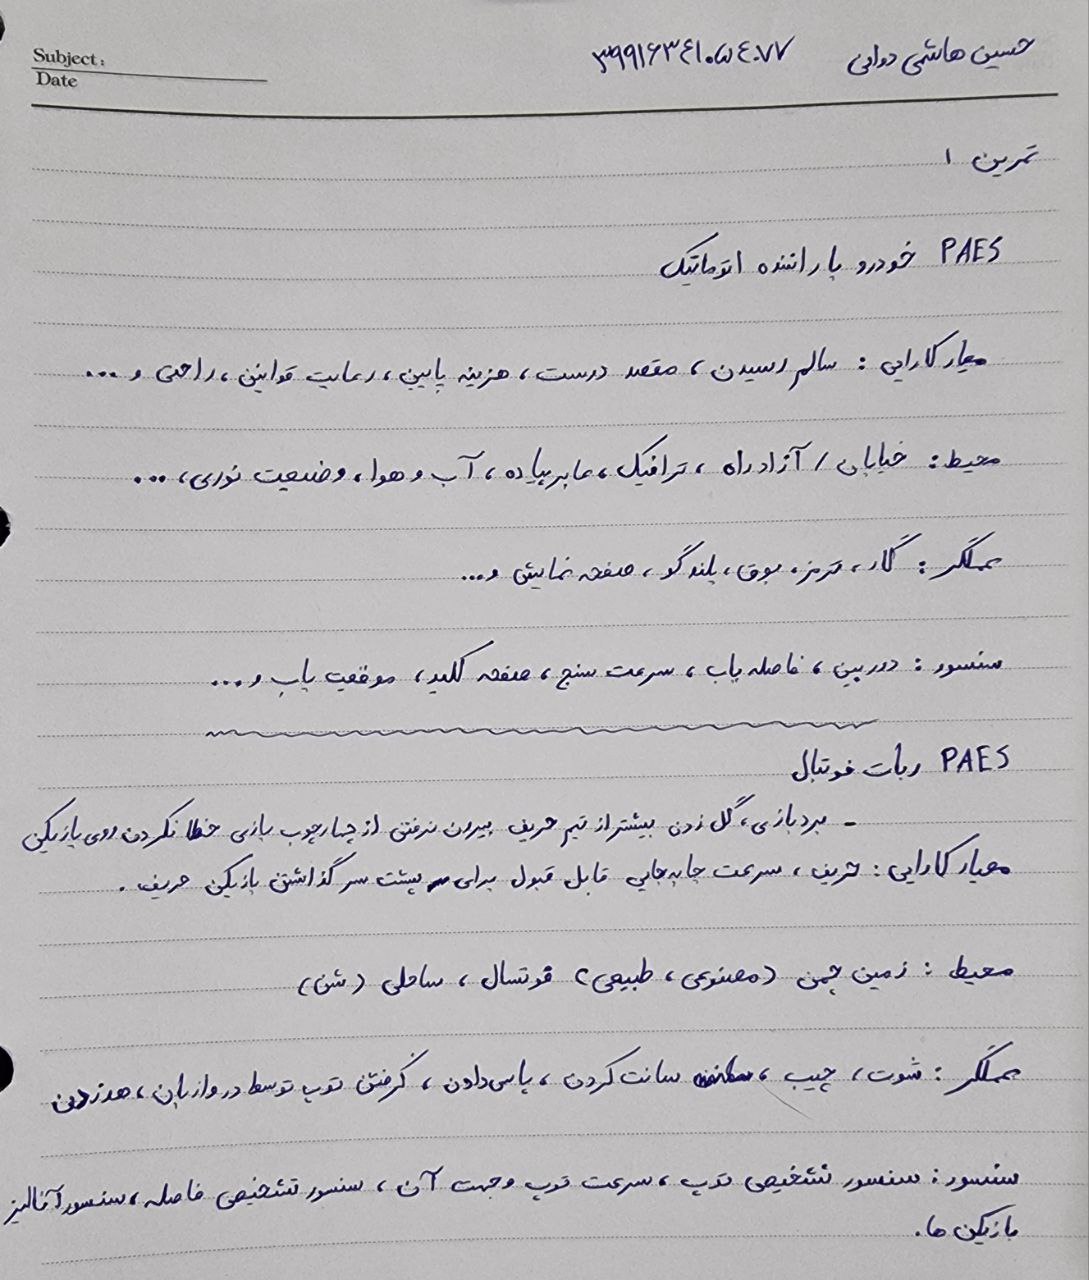 Subject:
Date
حسین هاشمی دولابی ۳۹۹۱۶۳۴۱۰۵۴۰۷۷
تمرین ۱
PAES خودرو با راننده اتوماتیک
معیار کارایی : سالم رسیدن ، مقصد درست ، هزینه پایین ، رعایت قوانین ، راحتی و ...
محیط : خیابان / آزاد راه ، ترافیک ، عابر پیاده ، آب و هوا ، وضعیت نوری ، ...
عملگر : گاز ، ترمز ، بوق ، بلندگو ، صفحه نمایش و ...
سنسور : دوربین ، فاصله یاب ، سرعت سنج ، صفحه کلید ، موقعیت یاب و ...
PAES ربات فوتبال
- برد بازی ، گل زدن بیشتر از تیم حریف بیرون نرفتن از چهارچوب بازی خطا نکردن روی بازیکن
معیار کارایی : حریف ، سرعت جابه جایی قابل قبول برای پشت سر گذاشتن بازیکن حریف .
محیط : زمین چمن (مصنوعی ، طبیعی) فوتسال ، ساحلی (شن)
عملگر : شوت ، چیپ ، سانت کردن ، پاس دادن ، گرفتن توپ توسط دروازبان ، هد زدن
سنسور : سنسور تشخیص توپ ، سرعت توپ و جهت آن ، سنسور تشخیص فاصله ، سنسور آنالیز
بازیکن ها .